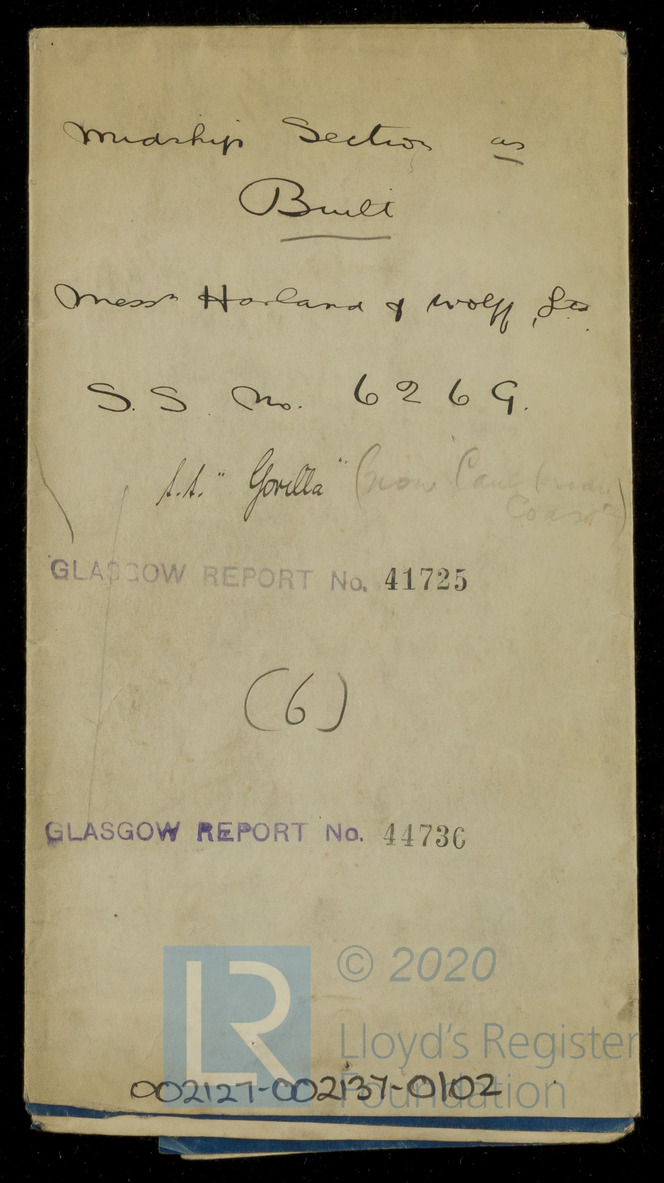 Midship Section as
Built
Messrs Harland & Wolff, Ld.
S.S. No. 626G.
s.s. "Gorilla" (now
Coast)
GLASGOW REPORT No. 41725
(6)
GLASGOW REPORT No. 44736
LR
© 2020
Lloyd's Register
Foundation
002127-002137-0102